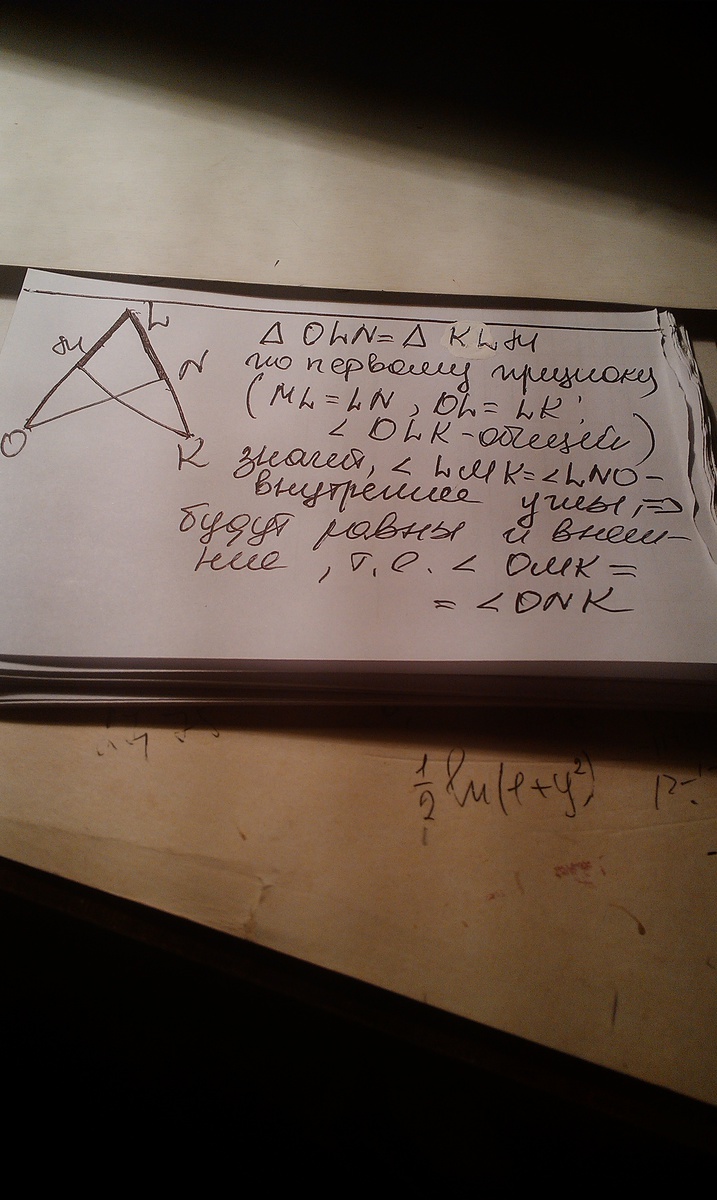 L
M
N
O
K
Δ OLN = Δ KLM
по первому признаку
(ML = LN, OL = LK,
< OLK - общий)
значит, < LMK = < LNO -
внутренние углы, ⇒
будут равны и внеш-
ние, т.е. < OMK =
= < ONK
1/2 ln(1+y²)